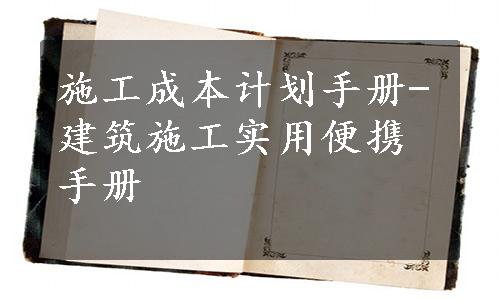 施工成本计划手册-
建筑施工实用便携
手册